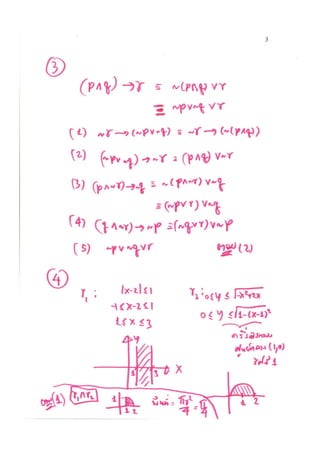 3
③
(p∧q) → r ≡ ~(p∧q) ∨ r
≡ ~p∨~q ∨ r
(1) ~r → (~p∨~q) ≡ ~r → (~(p∧q))
(2) (~p∨~q) → ~r ≡ (p∧q) ∨ ~r
(3) (p∧~r) → q ≡ ~(p∧~r) ∨ ~q
≡ (~p∨r) ∨ ~q
(4) (q∧~r) → ~p ≡ (~q∨r) ∨ ~p
(5) ~p∨~q∨r ตอบ (2)
④
r₁ : |x-2| ≤ 1 r₂ : 0 ≤ y ≤ √-x²+2x
-1 ≤ x-2 ≤ 1 0 ≤ y ≤ √1-(x-1)²
1 ≤ x ≤ 3 ครึ่งวงกลม
y ศูนย์กลาง (1,0)
1 3 x รัศมี 1
ตอบ (1) r₁∩r₂ 1 1 2 พื้นที่ = πr²/4 = π/4 1 2